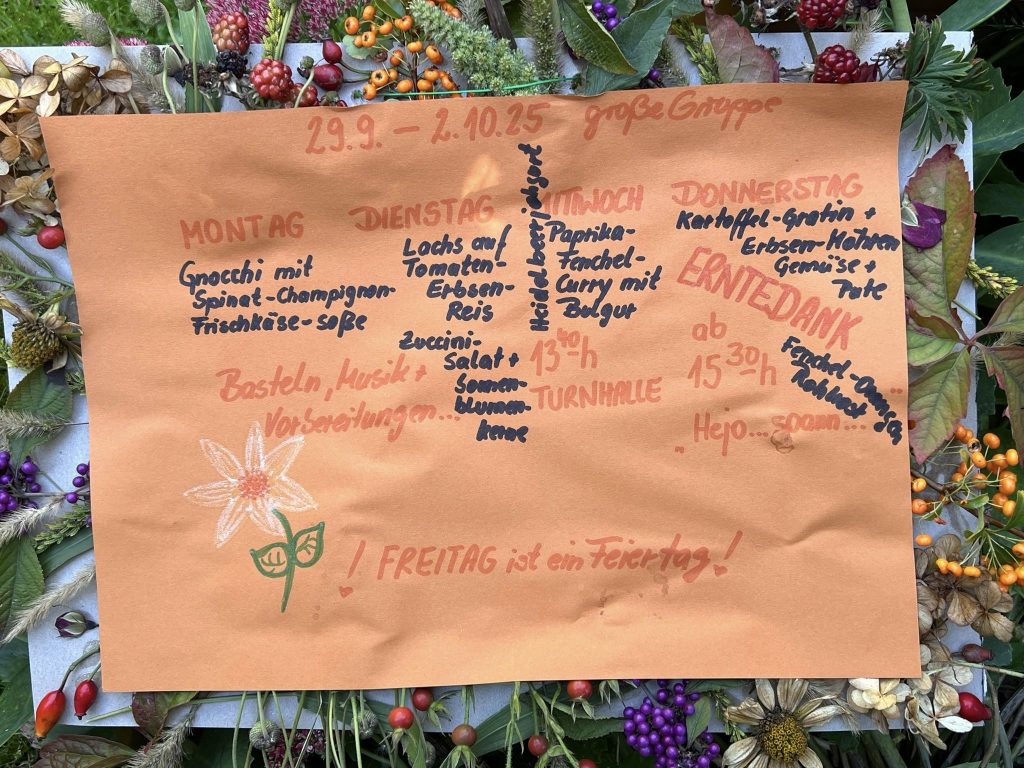 29.9. – 2.10.25 große Gruppe
MONTAG
Gnocchi mit
Spinat-Champignon-
Frischkäse-soße
Basteln, Musik +
Vorbereitungen...
DIENSTAG
Lachs auf
Tomaten-
Erbsen-
Reis
Zuccini-
Salat +
Sonnen-
blumen-
kerne
Heidelbeerjoghurt
MITTWOCH
Paprika-
Fenchel-
Curry mit
Bulgur
13⁴⁰h
TURNHALLE
DONNERSTAG
Kartoffel-Gratin +
Erbsen-Möhren
Gemüse +
Pute
ERNTEDANK
ab
15³⁰h
Fenchel-
Rohkost
"Hejo... spann..."
! FREITAG ist ein Feiertag !